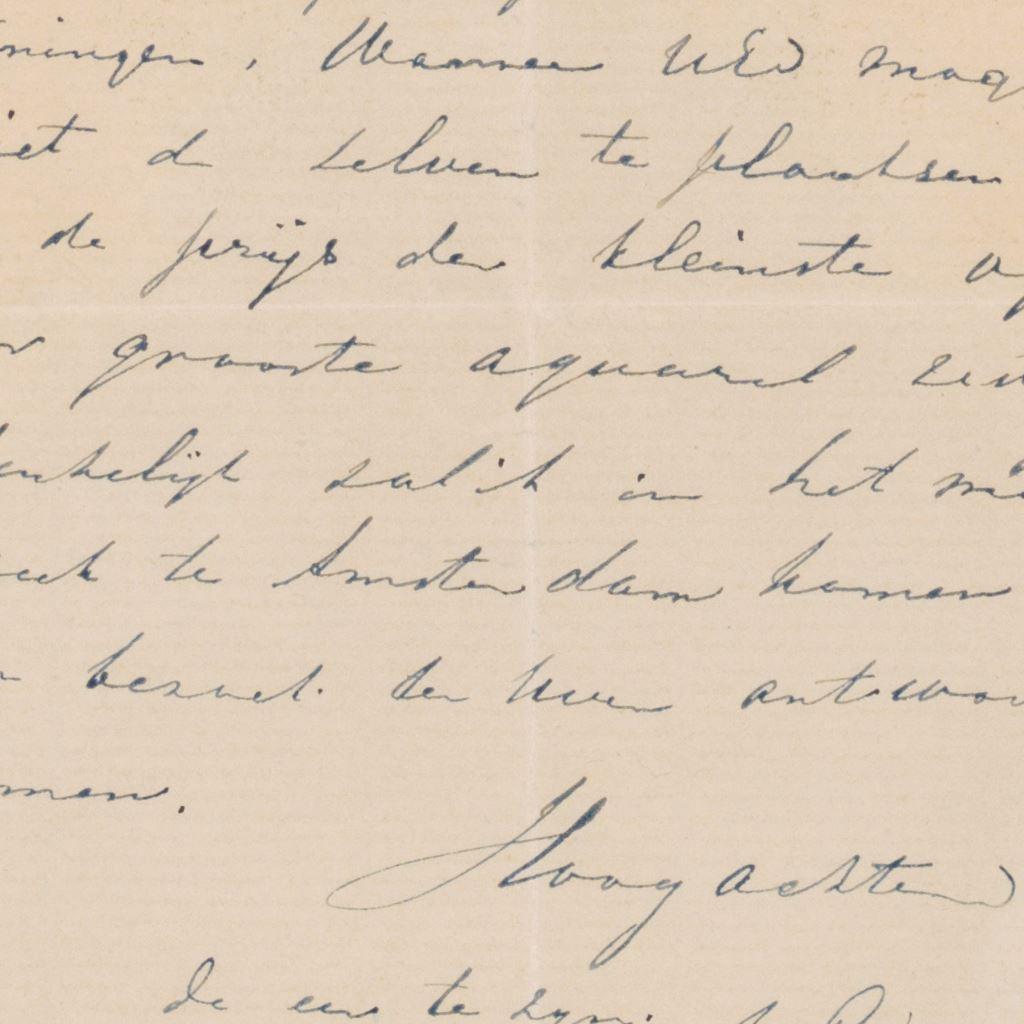 ningen, Wanneer UED mog
iet de zelven te plaatsen
de prijs der kleinste
groote aquarel
zal ik in het
te Amsterdam komen
ten Uwen antwoo
men.
Hoogachten
de eer te zijn